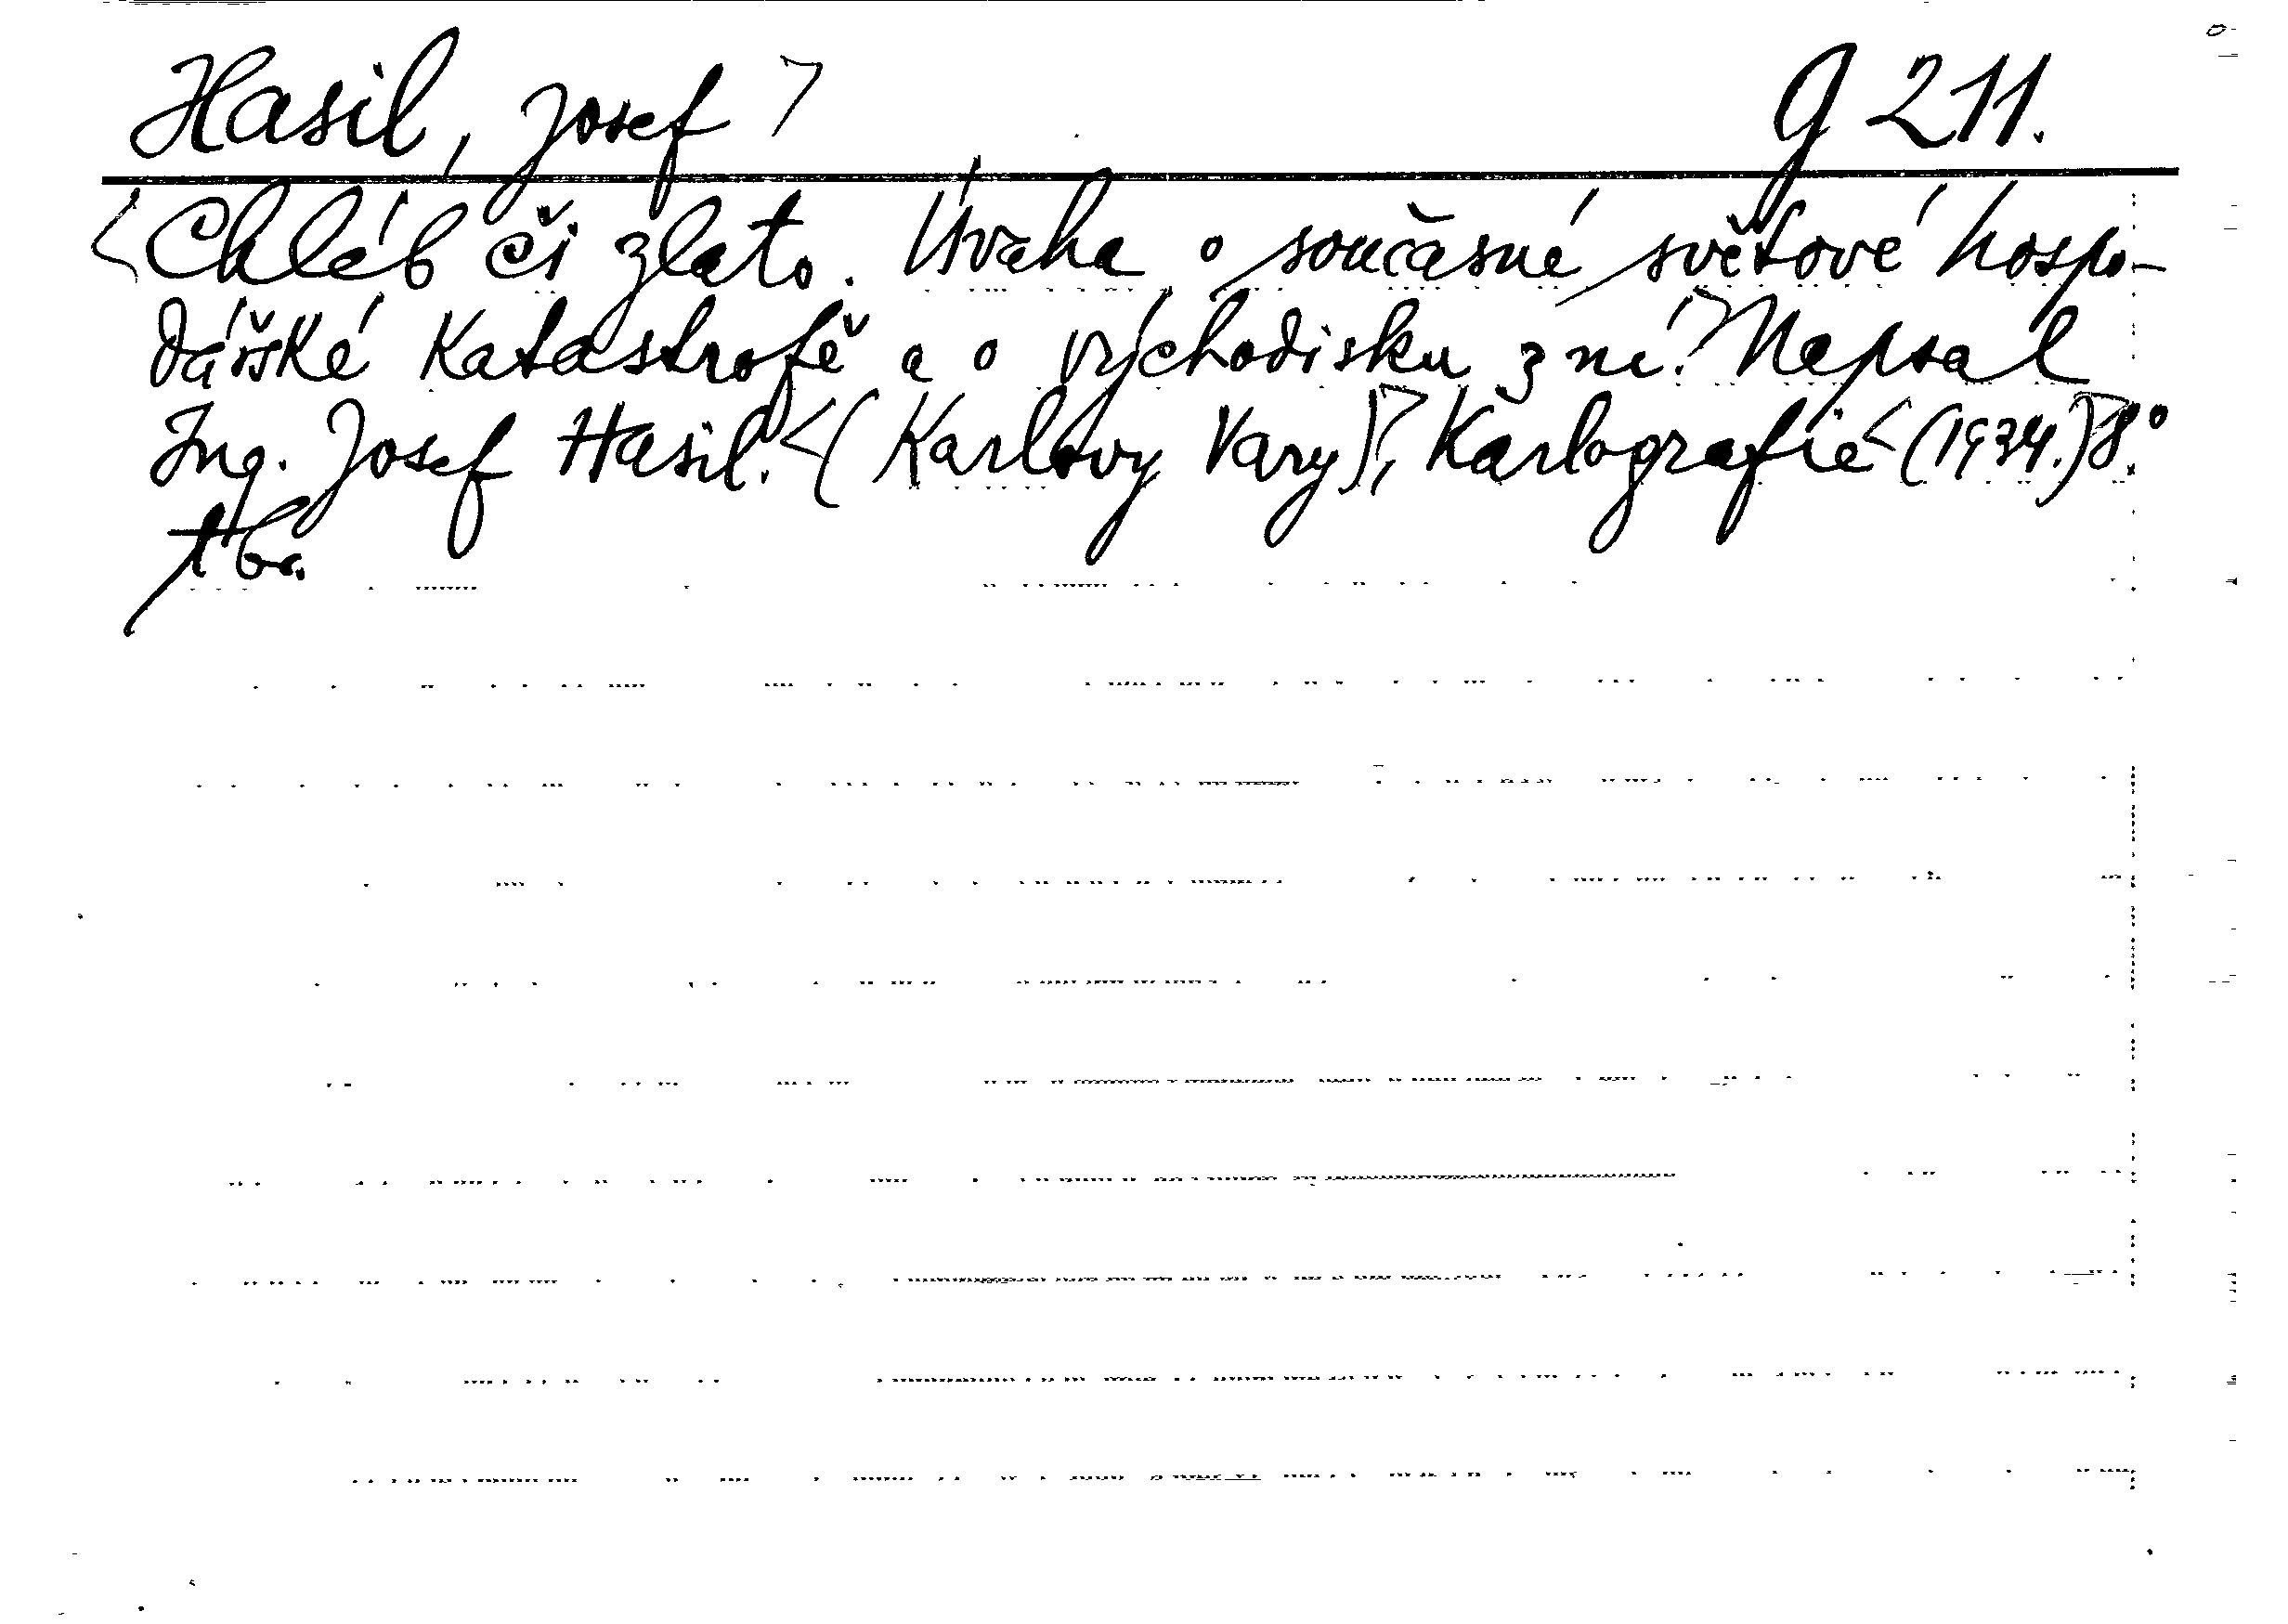 Hasil, Josef > g 211.
<Chléb či zlato. Úvaha o současné světové hospo-
dářské katastrofě a o východisku z ní.> Napsal
Ing. Josef Hasil. <(Karlovy Vary)>, Karlografie <(1934.)> 8°.